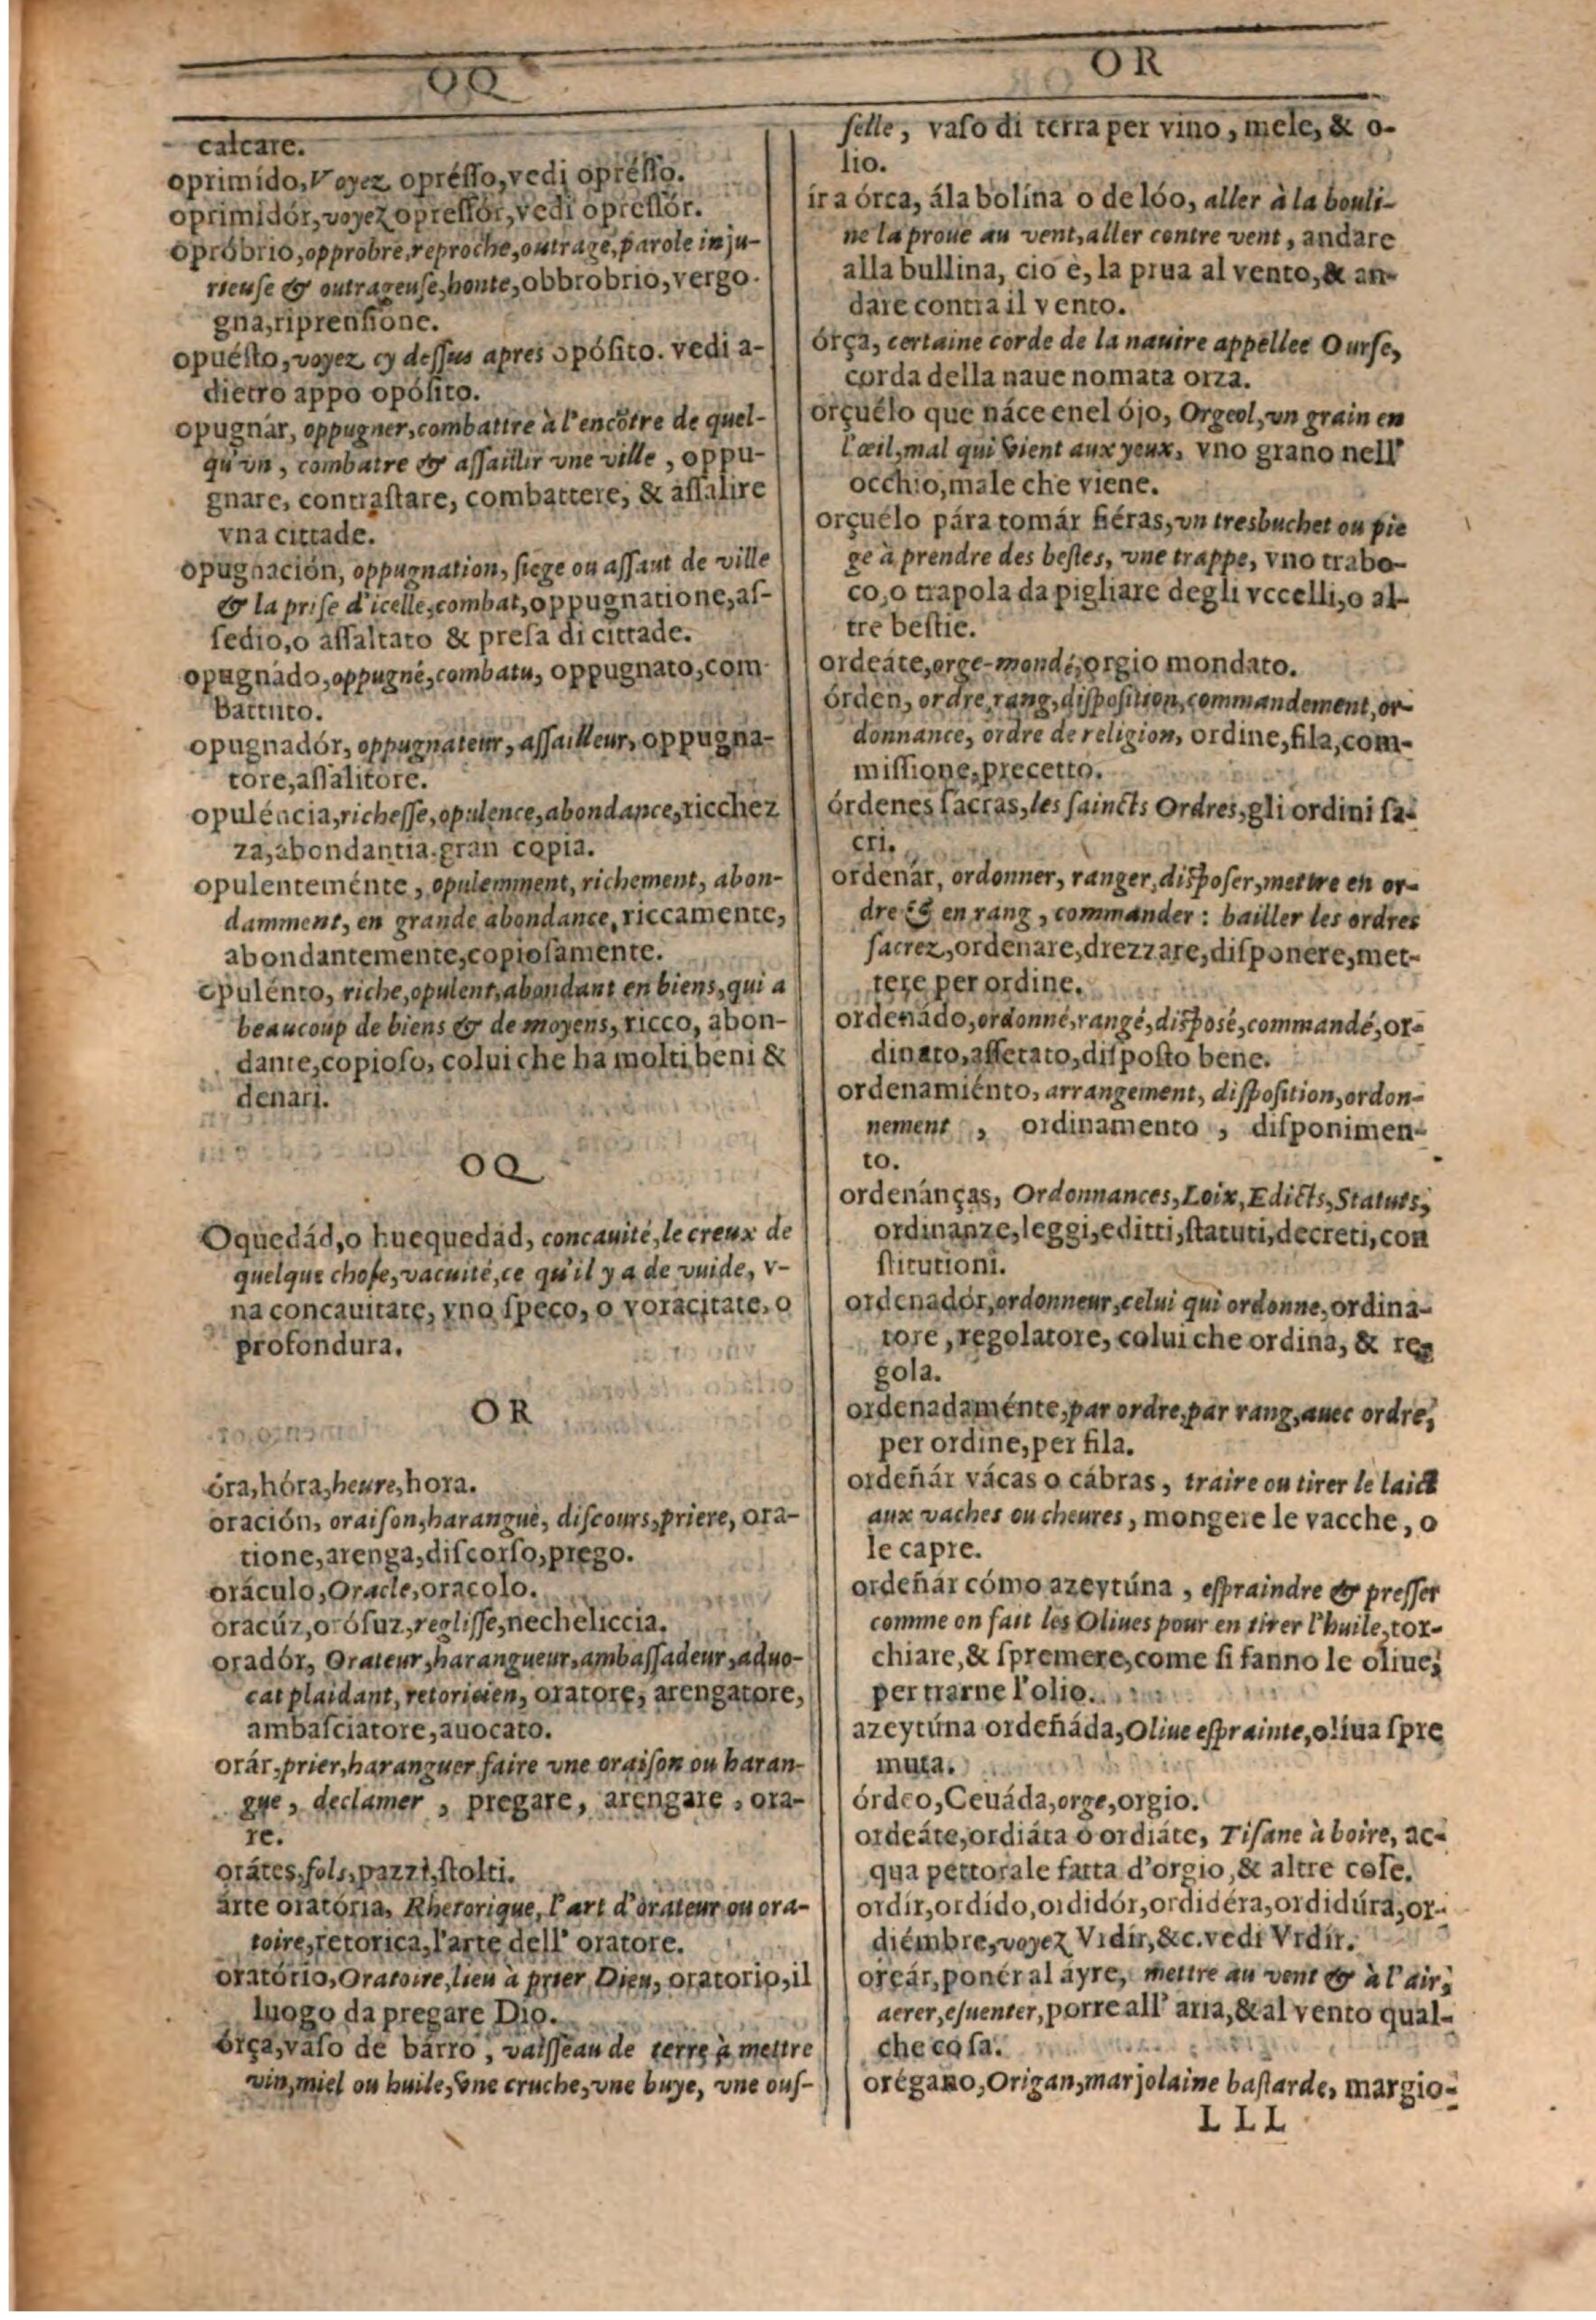 OQ
OR
calcare.
oprimído, Voyez oprésso, vedi oprésso.
oprimidór, voyez opressór, vedi opressór.
opróbrio, opprobre, reproche, outrage, parole inju-
rieuse & outrageuse, honte, obbrobrio, vergo-
gna, riprensione.
opuésto, voyez cy dessus apres opósito. vedi a-
dietro appo opósito.
opugnár, oppugner, combattre à l'encõtre de quel-
qu'vn, combatre & assaillir vne ville, oppu-
gnare, contrastare, combattere, & assalire
vna cittade.
opugnación, oppugnation, siege ou assaut de ville
& la prise d'icelle, combat, oppugnatione, as-
sedio, o assaltato & presa di cittade.
opugnádo, oppugné, combatu, oppugnato, com-
battuto.
opugnadór, oppugnateur, assailleur, oppugna-
tore, assalitore.
opuléncia, richesse, opulence, abondance, ricchez
za, abondantia, gran copia.
opulenteménte, opulemment, richement, abon-
damment, en grande abondance, riccamente,
abondantemente, copiosamente.
opulénto, riche, opulent, abondant en biens, qui a
beaucoup de biens & de moyens, ricco, abon-
dante, copioso, colui che ha molti beni &
denari.
OQ
Oquedád, o huequedad, concauité, le creux de
quelque chose, vacuité, ce qu'il y a de vuide, v-
na concauitate, vno speco, o voracitate, o
profondura.
OR
óra, hóra, heure, hora.
oración, oraison, harangue, discours, priere, ora-
tione, arenga, discorso, prego.
oráculo, Oracle, oracolo.
oracúz, orósuz, reglisse, necheliccia.
oradór, Orateur, harangueur, ambassadeur, aduo-
cat plaidant, retoricien, oratore, arengatore,
ambasciatore, auocato.
orár, prier, haranguer faire vne oraison ou haran-
gue, declamer, pregare, arengare, ora-
re.
orátes, fols, pazzi, stolti.
árte oratória, Rhetorique, l'art d'orateur ou ora-
toire, retorica, l'arte dell' oratore.
oratório, Oratoire, lieu à prier Dieu, oratorio, il
luogo da pregare Dio.
órça, vaso de bárro, vaisseau de terre à mettre
vin, miel ou huile, vne cruche, vne buye, vne ous-
selle, vaso di terra per vino, mele, & o-
lio.
ír a órca, ála bolína o de lóo, aller à la bouli-
ne la proue au vent, aller contre vent, andare
alla bullina, cio è, la prua al vento, & an-
dare contra il vento.
órça, certaine corde de la nauire appellee Ourse,
corda della naue nomata orza.
orçuélo que náce enel ójo, Orgeol, vn grain en
l'œil, mal qui vient aux yeux, vno grano nell'
occhio, male che viene.
orçuélo pára tomár fiéras, vn tresbuchet ou pie
ge à prendre des bestes, vne trappe, vno trabo-
co, o trapola da pigliare degli vccelli, o al-
tre bestie.
ordeáte, orge-mondé, orgio mondato.
órden, ordre, rang, disposition, commandement, or-
donnance, ordre de religion, ordine, fila, com-
missione, precetto.
órdenes sacras, les saincts Ordres, gli ordini sa-
cri.
ordenár, ordonner, ranger, disposer, mettre en or-
dre & en rang, commander: bailler les ordres
sacrez, ordenare, drezzare, disponere, met-
tere per ordine.
ordenádo, ordonné, rangé, disposé, commandé, or-
dinato, assetato, disposto bene.
ordenamiénto, arrangement, disposition, ordon-
nement, ordinamento, disponimen-
to.
ordenánças, Ordonnances, Loix, Edicts, Statuts,
ordinanze, leggi, editti, statuti, decreti, con
stitutioni.
ordenadór, ordonneur, celui qui ordonne, ordina-
tore, regolatore, colui che ordina, & re-
gola.
ordenadaménte, par ordre, par rang, auec ordre,
per ordine, per fila.
ordeñár vácas o cábras, traire ou tirer le laict
aux vaches ou cheures, mongere le vacche, o
le capre.
ordeñár cómo azeytúna, espraindre & presser
comme on fait les Oliues pour en tirer l'huile, tor-
chiare, & spremere, come si fanno le oliue,
per trarne l'olio.
azeytúna ordeñáda, Oliue esprainte, oliua spre
muta.
órdeo, Ceuáda, orge, orgio.
ordeáte, ordiáta o ordiáte, Tisane à boire, ac-
qua pettorale fatta d'orgio, & altre cose.
ordír, ordído, ordidór, ordidéra, ordidúra, or-
diémbre, voyez Vrdír, &c. vedi Vrdír.
oreár, ponér al áyre, mettre au vent & à l'air,
aerer, esuenter, porre all' aria, & al vento qual-
che cosa.
orégano, Origan, marjolaine bastarde, margio-
LLL